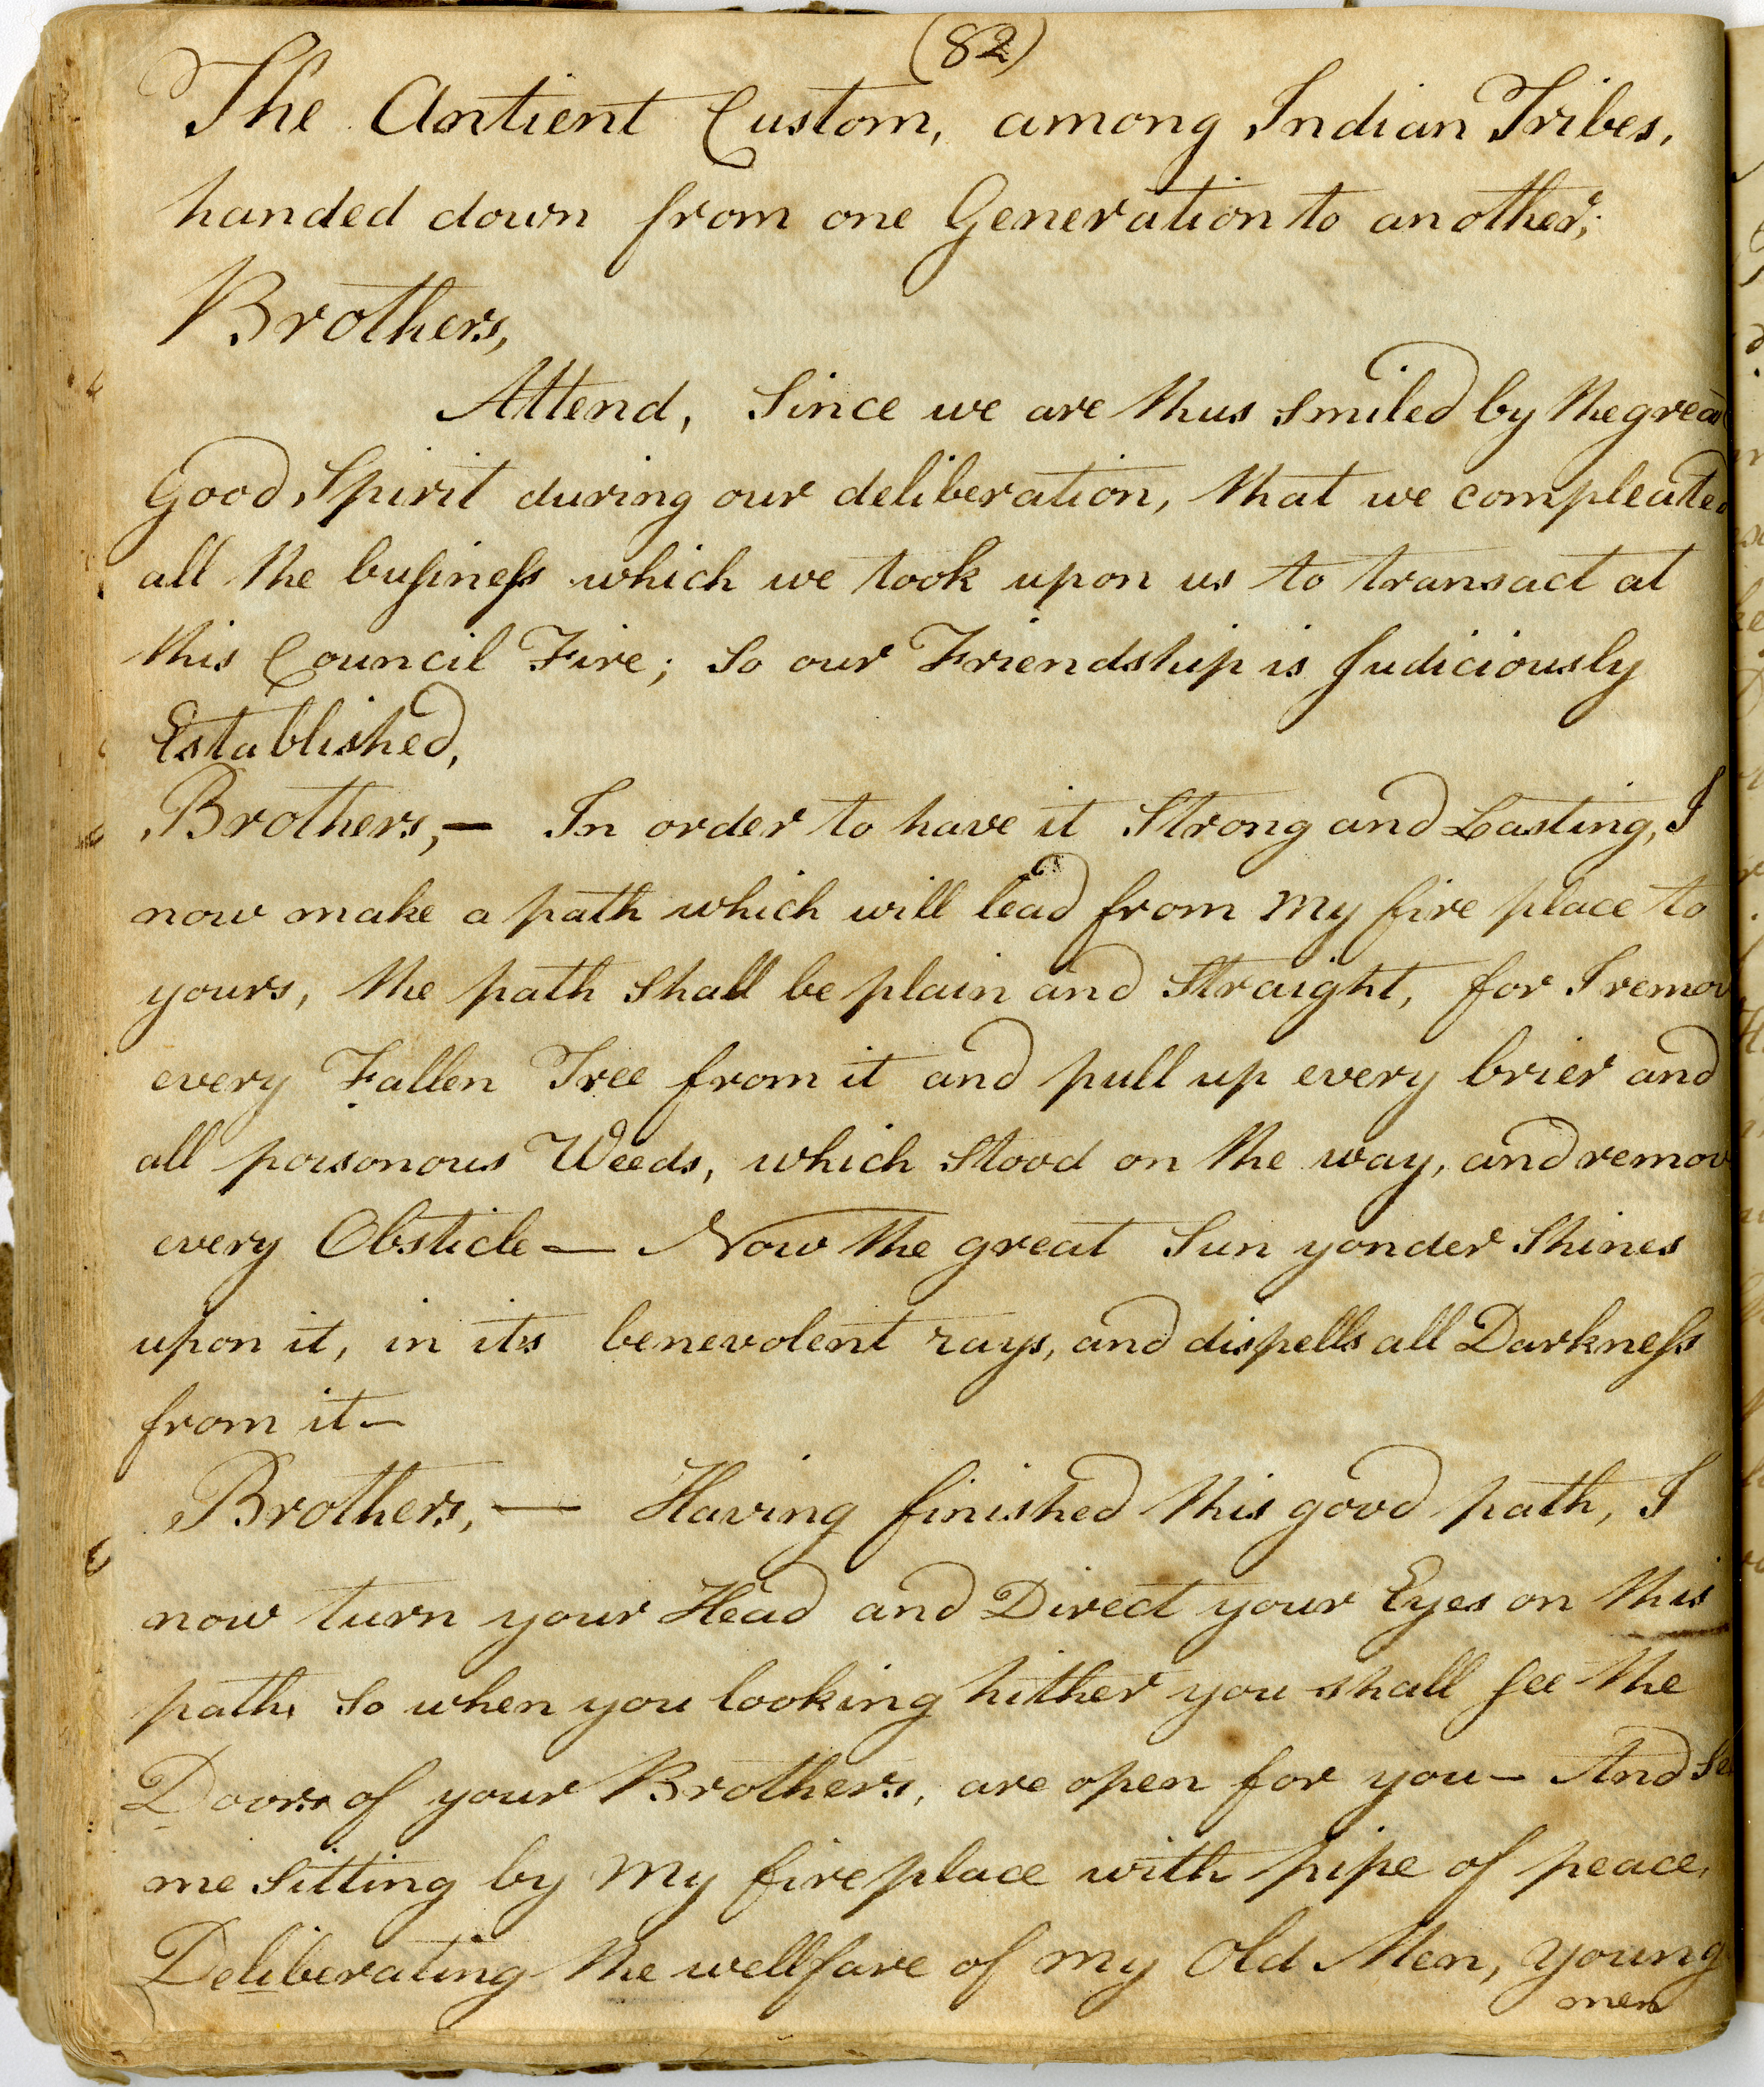 (82)
The Antient Custom, among Indian Tribes,
handed down from one Generation to another;
Brothers,
Attend, Since we are thus smiled by the great
Good Spirit during our deliberation, that we compleated
all the busineſs which we took upon us to transact at
this Council Fire; So our Friendship is Judiciously
Established,
Brothers,— In order to have it Strong and Lasting, I
now make a path which will lead from my fire place to
yours, the path shall be plain and Straight, for I remov
every Fallen Tree from it and pull up every brier and
all poisonous Weeds, which Stood on the way, and remov
every Obsticle— Now the great Sun yonder Shines
upon it, in its benevolent rays, and dispells all Darkneſs
from it—
Brothers,— Having finished this good path, I
now turn your Head and Direct your Eyes on this
path, So when you looking hither you shall see the
Doors of your Brothers, are open for you— And Se
me Sitting by my fireplace with pipe of peace,
Deliberating the wellfare of my Old Men, young
men